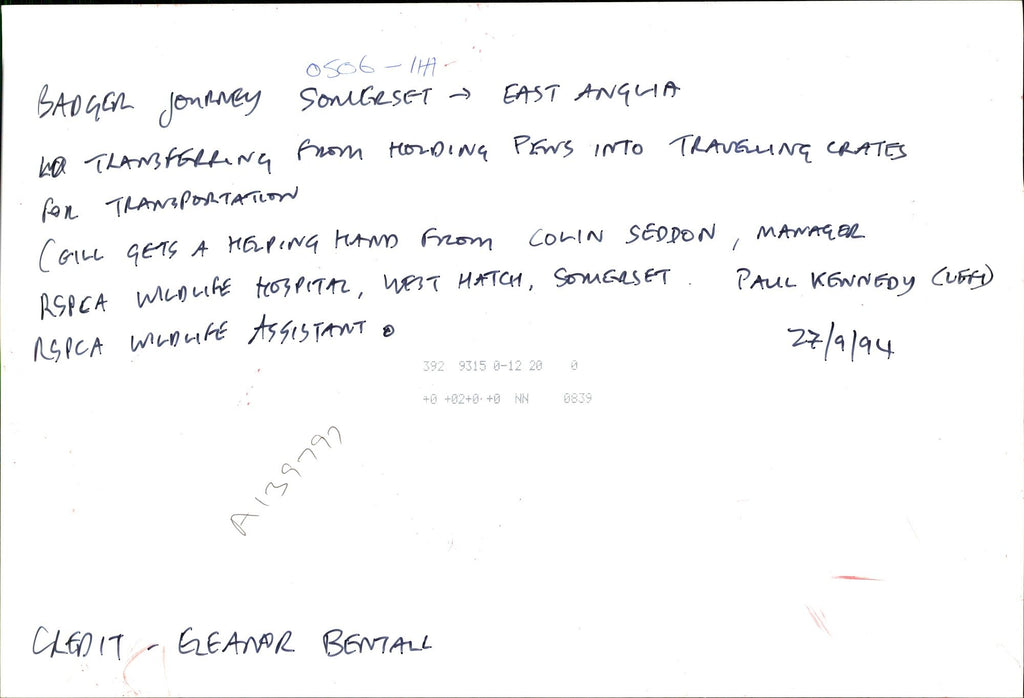 0506 - 1HA -
BADGER JOURNEY SOMERSET → EAST ANGLIA
TRANSFERRING FROM HOLDING PENS INTO TRAVELLING CRATES
FOR TRANSPORTATION
(GILL GETS A HELPING HAND FROM COLIN SEDDON, MANAGER
RSPCA WILDLIFE HOSPITAL, WEST HATCH, SOMERSET. PAUL KENNEDY (LEFT)
RSPCA WILDLIFE ASSISTANT.
27/9/94
392 9315 0-12 20 0
+0 +02+0-+0 NN 0839
A139797
CREDIT - ELEANOR BENTALL